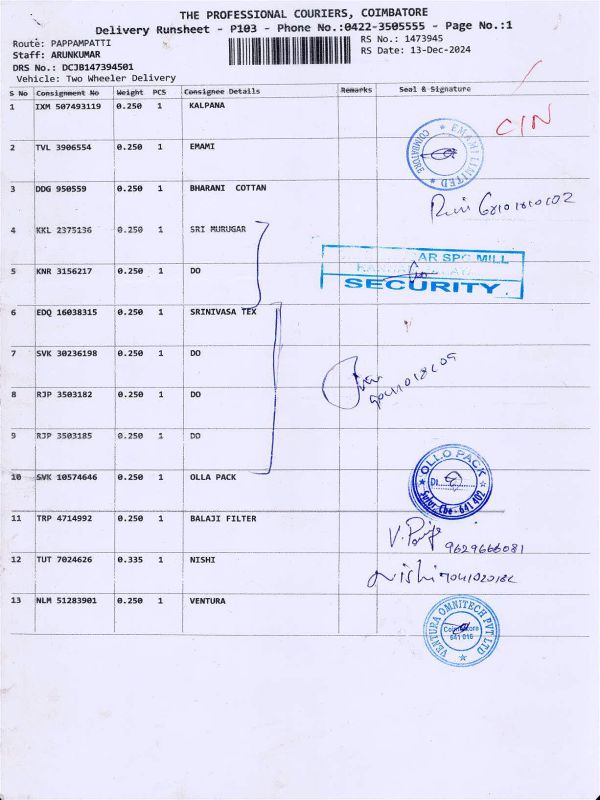 THE PROFESSIONAL COURIERS, COIMBATORE
Delivery Runsheet - P103 - Phone No.:0422-3505555 - Page No.:1
Route: PAPPAMPATTI
RS No.: 1473945
Staff: ARUNKUMAR
RS Date: 13-Dec-2024
DRS No.: DCJB147394501
Vehicle: Two Wheeler Delivery
S No Consignment No Weight PCS Consignee Details Remarks Seal & Signature
1 IXM 507493119 0.250 1 KALPANA
C/N
2 TVL 3906554 0.250 1 EMAMI
EMAMI LIMITED
COIMBATORE
3 DDG 950559 0.250 1 BHARANI COTTAN
4 KKL 2375136 0.250 1 SRI MURUGAR
AR SPG MILL
5 KNR 3156217 0.250 1 DO
SECURITY.
6 EDQ 16038315 0.250 1 SRINIVASA TEX
7 SVK 30236198 0.250 1 DO
8 RJP 3503182 0.250 1 DO
9 RJP 3503185 0.250 1 DO
10 SVK 10574646 0.250 1 OLLA PACK
OLLO PACK
Sulur, Cbe - 641 402
11 TRP 4714992 0.250 1 BALAJI FILTER
9629666081
12 TUT 7024626 0.335 1 NISHI
Nishi
13 NLM 51283901 0.250 1 VENTURA
VENTURA OMNITECH PVT LTD
Coimbatore
641 016